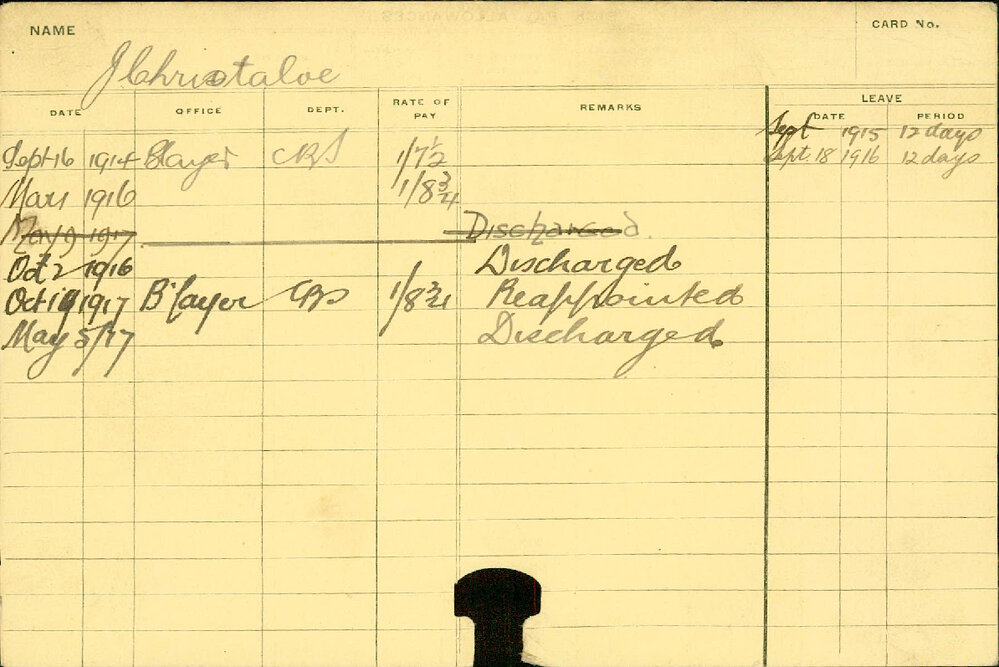 NAME
CARD No.
J Christaloe
DATE OFFICE DEPT. RATE OF PAY REMARKS LEAVE
DATE PERIOD
Sept 16 1914 Blayer CBS 1/7½ Sept 1915 12 days
Mar 1 1916 1/8¾ Sept. 18 1916 12 days
May 9 1917 Discharged.
Oct 2 1916 Discharged
Oct 19 1917 B'layer CBS 1/8¾ Reappointed
May 5/17 Discharged